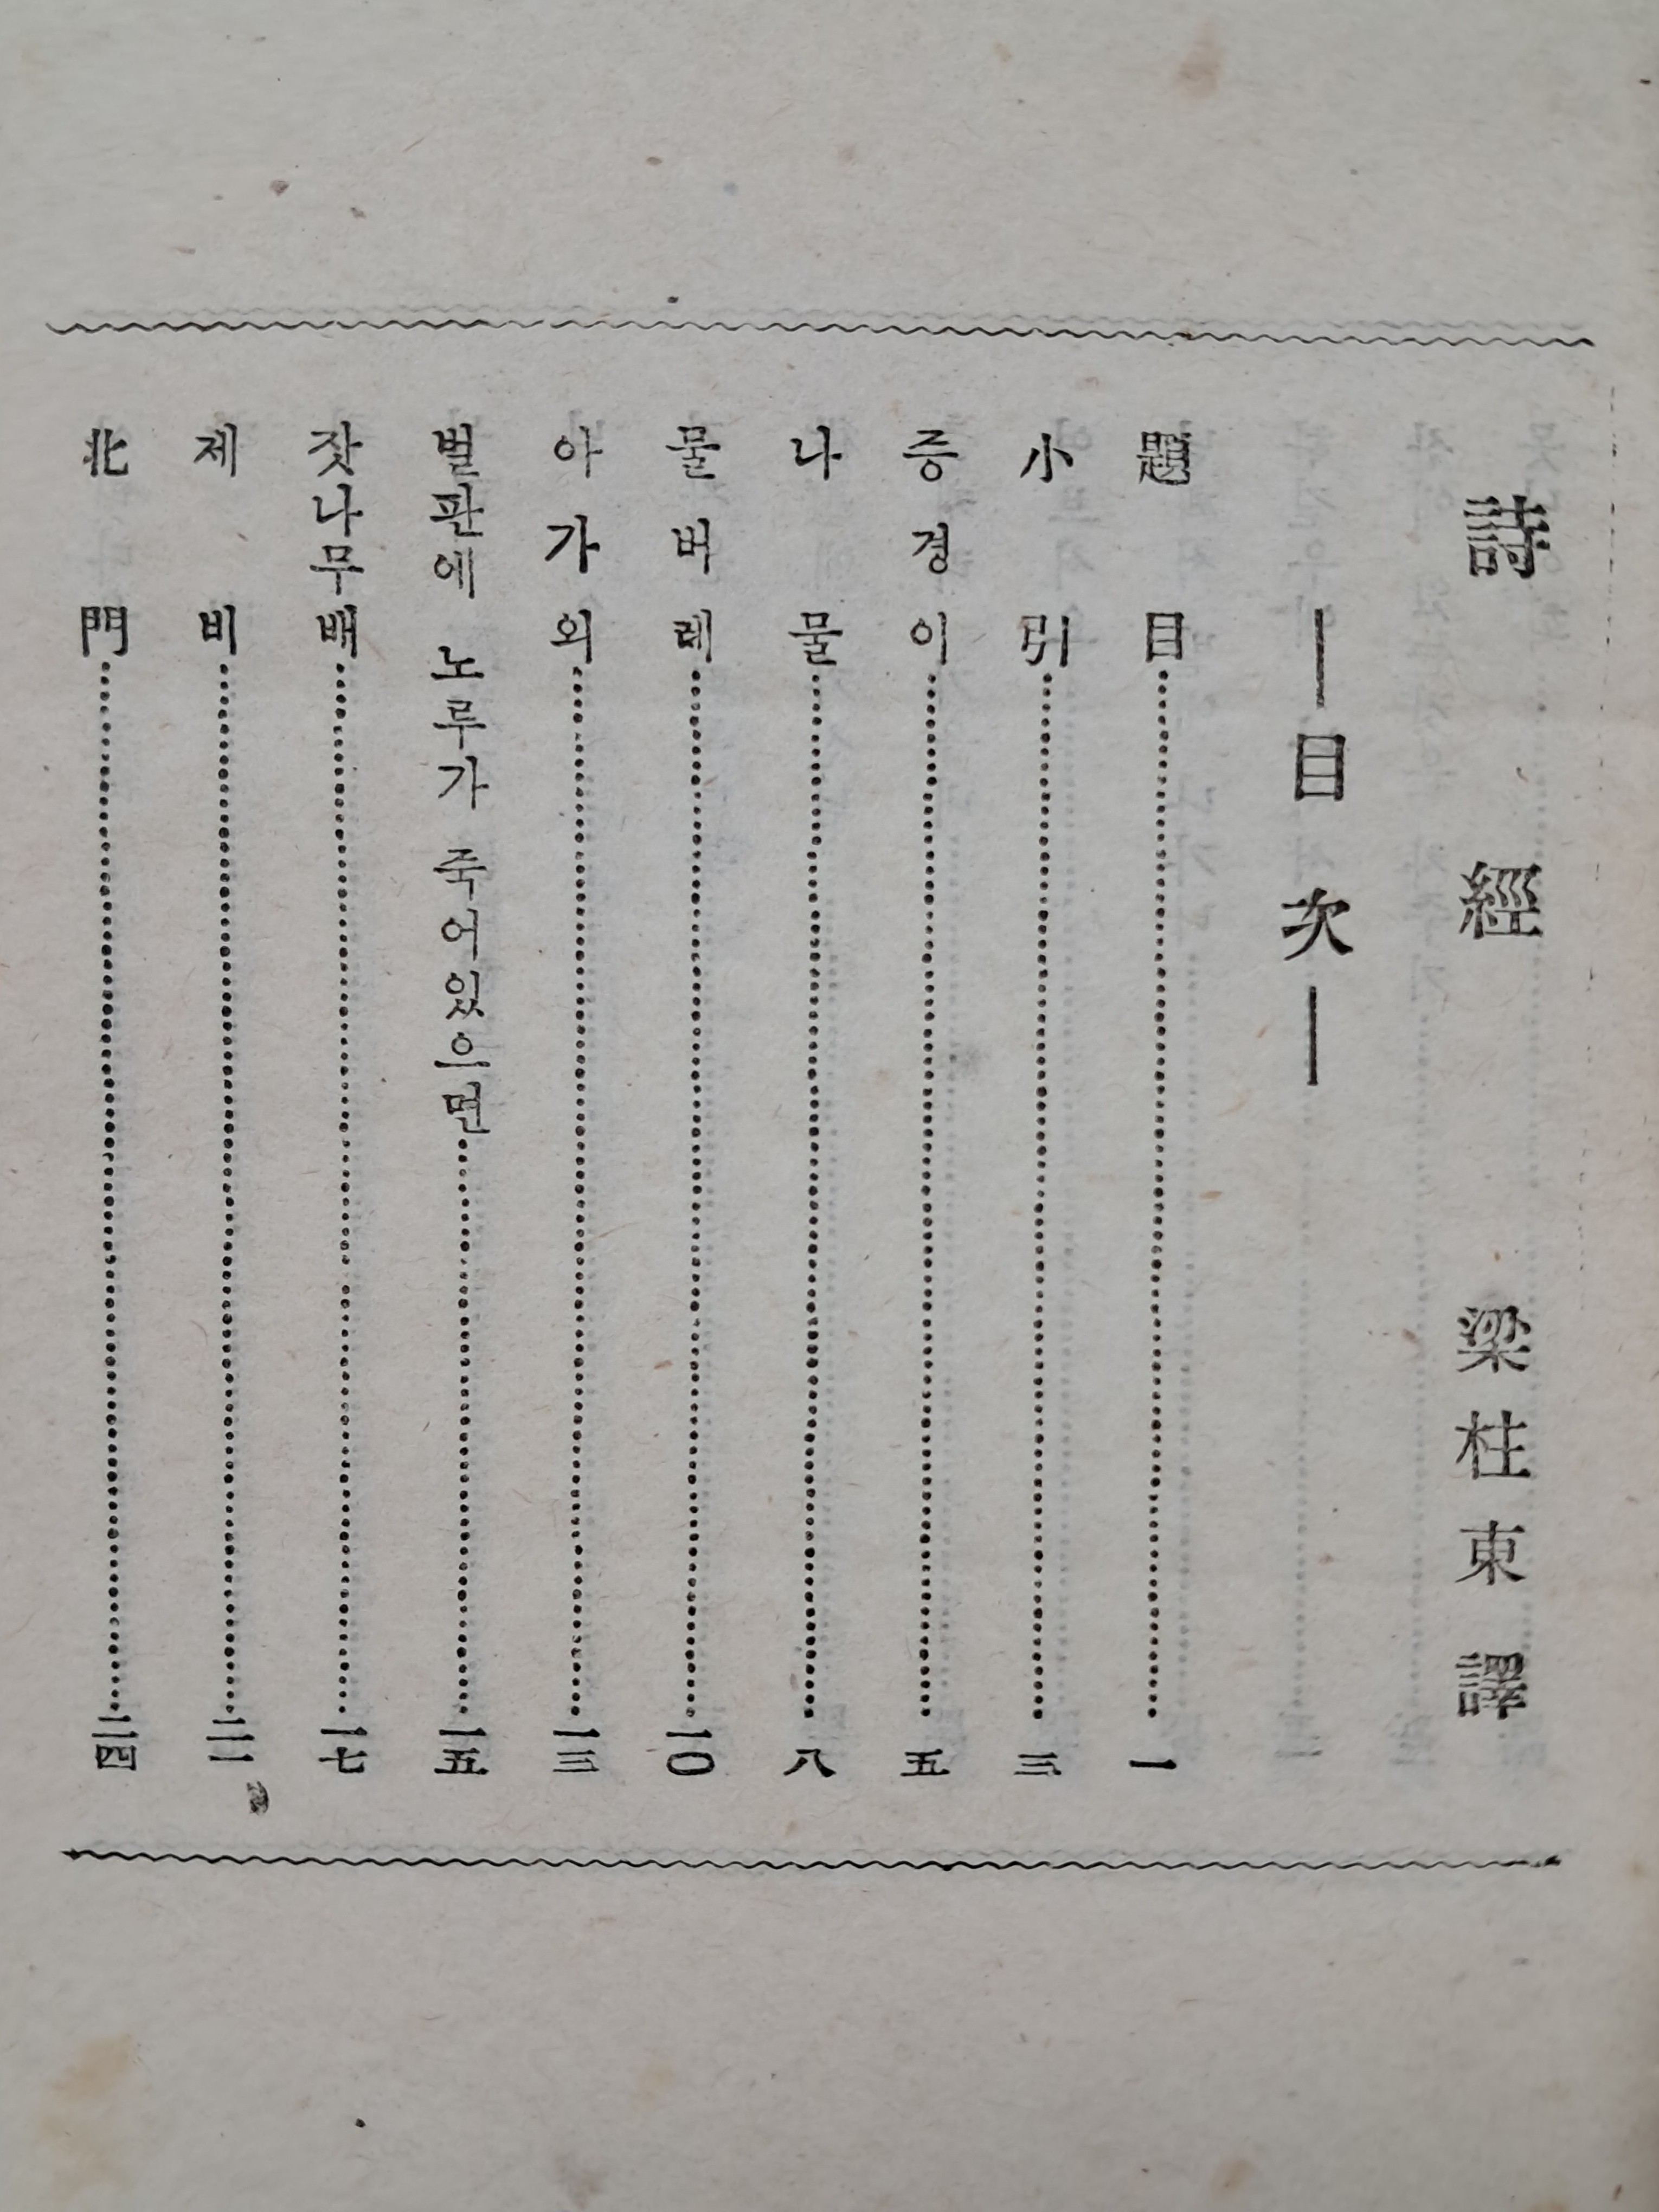 詩經 梁柱東 譯
—目次—
題目……一
小引……三
증경이……五
나물……八
물버레……一〇
아가외……一三
벌판에 노루가 죽어있으면……一五
잣나무배……一七
제비……二一
北門……二四